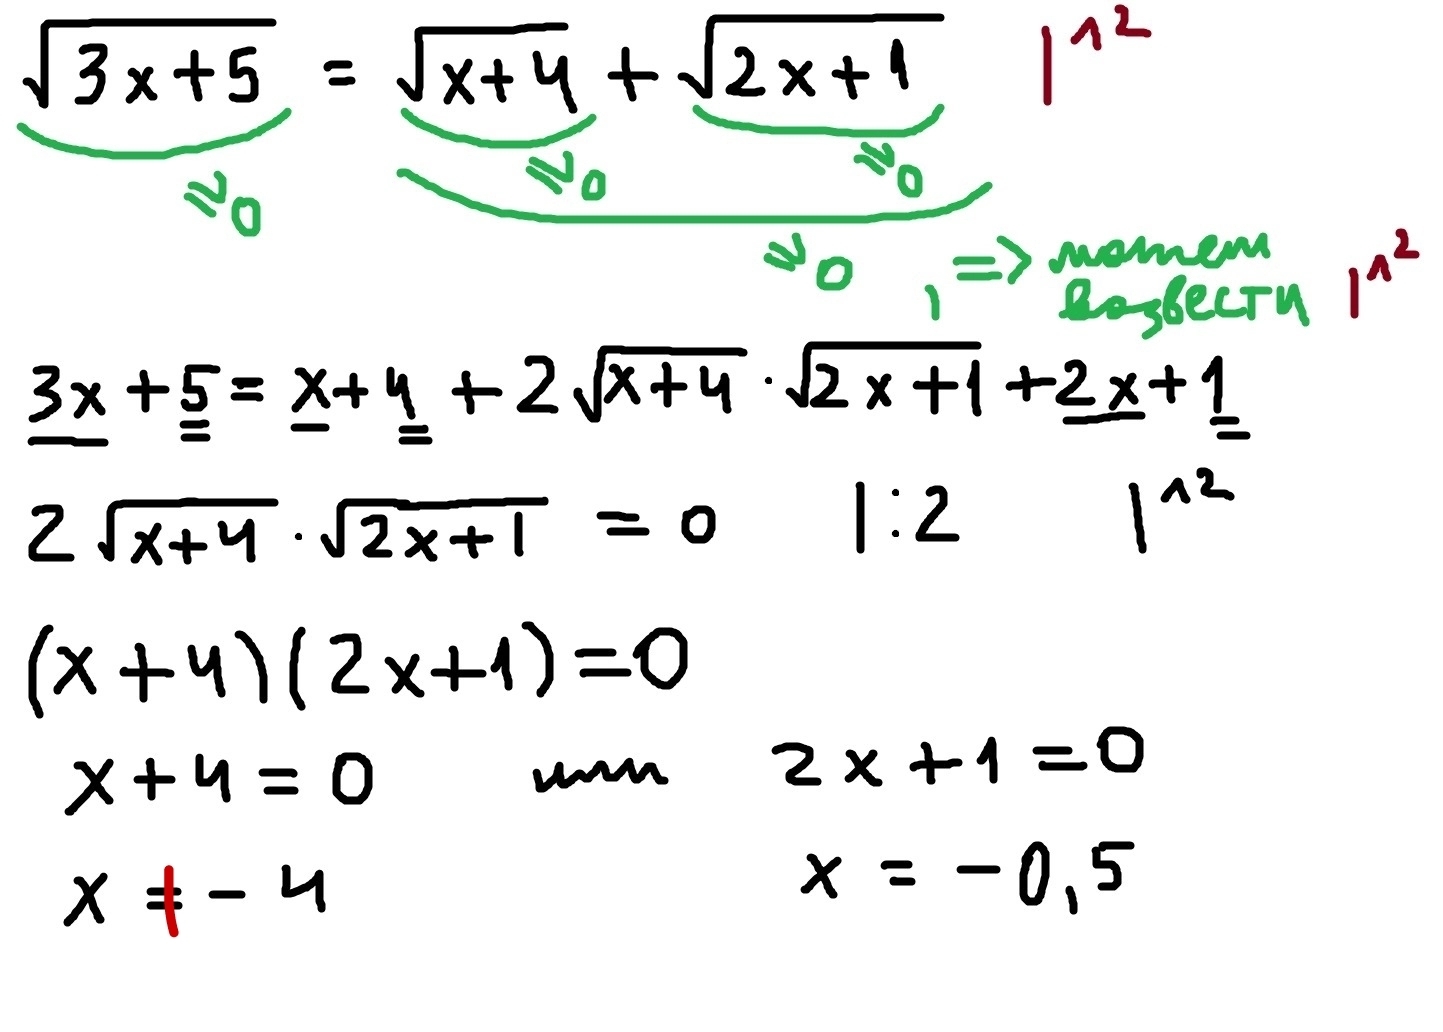 √(3x+5) = √(x+4) + √(2x+1) |^2
≥0 ≥0 ≥0
≥0, => можем
возвести |^2
3x + 5 = x + 4 + 2√(x+4) · √(2x+1) + 2x + 1
2√(x+4) · √(2x+1) = 0 |:2 |^2
(x+4)(2x+1)=0
x+4=0 или 2x+1=0
x ≠ -4 x = -0,5